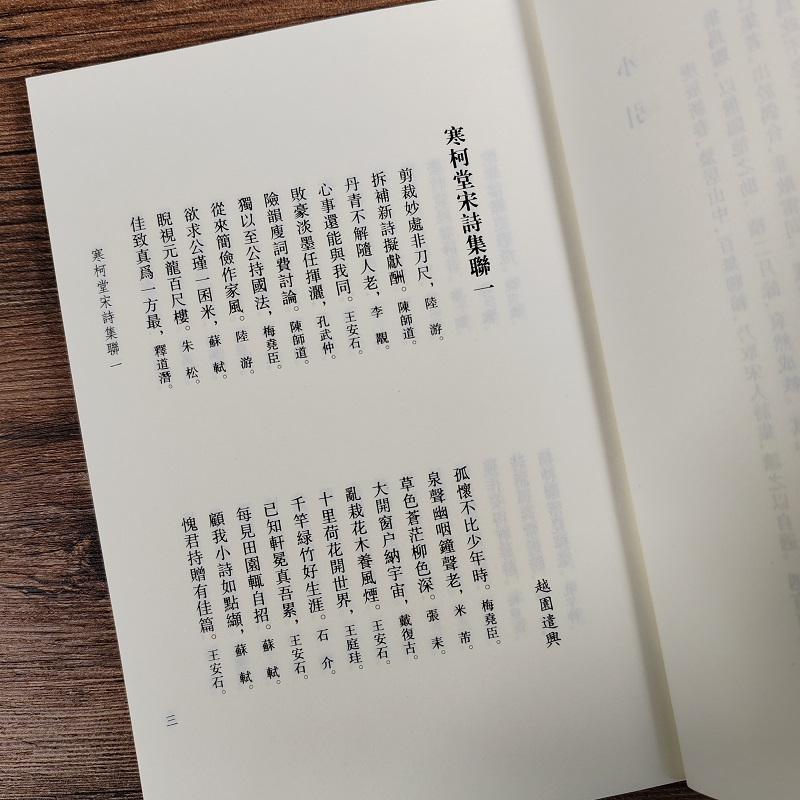 寒柯堂宋詩集聯一
越園遣興
剪裁妙處非刀尺，陸 游。
拆補新詩擬獻酬。陳師道。
丹青不解隨人老，李 覯。
心事還能與我同。王安石。
敗豪淡墨任揮灑，孔武仲。
險韻廋詞費討論。陳師道。
獨以至公持國法，梅堯臣。
從來簡儉作家風。陸 游。
欲求公瑾一囷米，蘇 軾。
睨視元龍百尺樓。朱 松。
佳致真爲一方最，釋道潛。
孤懷不比少年時。梅堯臣。
泉聲幽咽鐘聲老，米 芾。
草色蒼茫柳色深。張 耒。
大開窗户納宇宙，戴復古。
亂栽花木養風煙。王安石。
十里荷花開世界，王庭珪。
千竿緑竹好生涯。石 介。
已知軒冕真吾累，王安石。
每見田園輒自招。蘇 軾。
顧我小詩如點纈，蘇 軾。
愧君持贈有佳篇。王安石。
寒柯堂宋詩集聯一
三